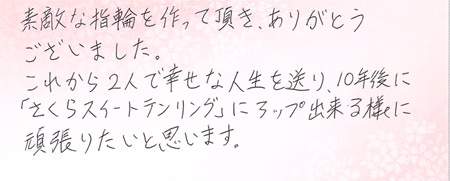 素敵な指輪を作って頂き、ありがとう
ございました。
これから2人で幸せな人生を送り、10年後に
「さくらスイートテンリング」にアップ出来る様に
頑張りたいと思います。